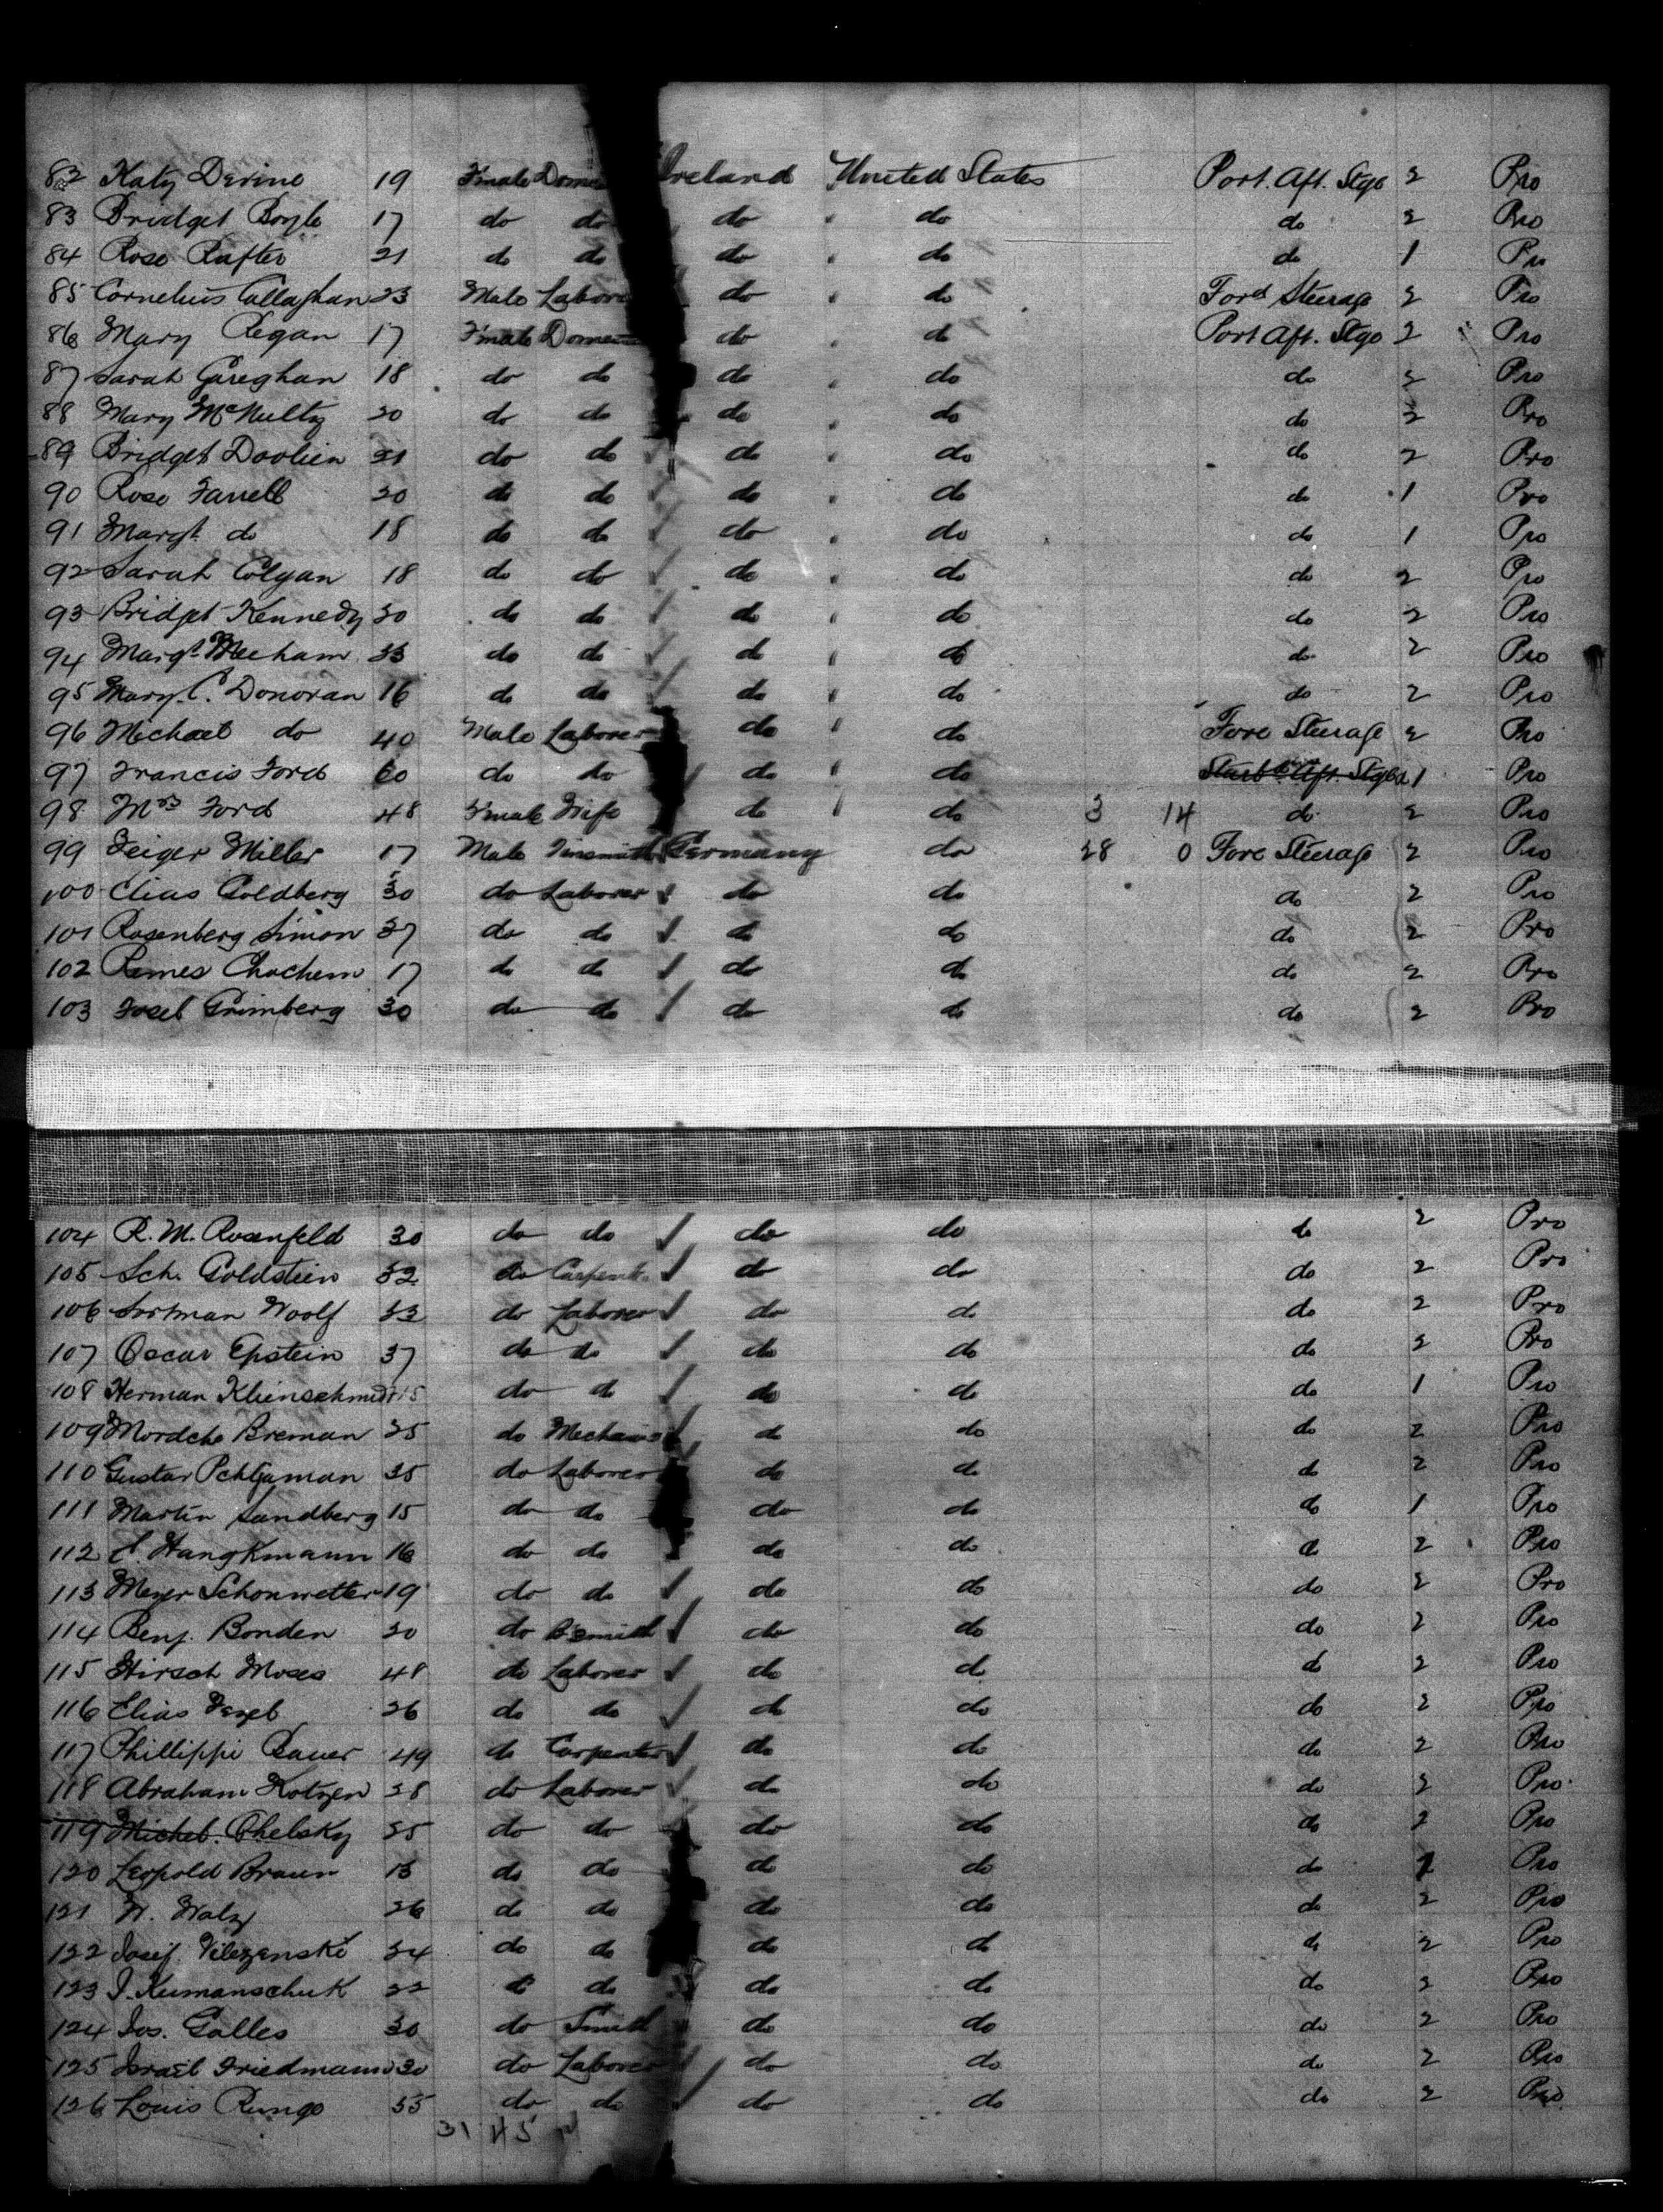 82 Katy Devine 19 Female Domes Ireland United States Port. Aft. Stge 2 Pro
83 Bridget Boyle 17 do do do " do do 2 Pro
84 Rose Rafter 21 do do do " do do 1 Pro
85 Cornelius Callaghan 23 Male Labore do do Ford Steerage 2 Pro
86 Mary Regan 17 Female Domes do do Port Aft. Stge 2 Pro
87 Sarah Gereghan 18 do do do " do do 2 Pro
88 Mary McNulty 20 do do do " do do 2 Pro
89 Bridget Doolien 21 do do do " do do 2 Pro
90 Rose Farrell 20 do do do " do do 1 Pro
91 Margt. do 18 do do do " do do 1 Pro
92 Sarah Colgan 18 do do do " do do 2 Pro
93 Bridget Kennedy 20 do do do " do do 2 Pro
94 Margt. Meeham 23 do do do " do do 2 Pro
95 Mary C. Donovan 16 do do do " do do 2 Pro
96 Michael do 40 Male Laborer do " do Fore Steerage 2 Pro
97 Francis Ford 60 do do do " do Starbd Aft. Stge 1 Pro
98 Mrs Ford 48 Female Wife do " do 3 14 do 2 Pro
99 Feiger Miller 17 Male Tinsmith Germany do 28 0 Fore Steerage 2 Pro
100 Elias Goldberg 30 do Laborer do do do 2 Pro
101 Rosenberg Simon 37 do do do do do 2 Pro
102 Remes Chochem 17 do do do do do 2 Pro
103 Josel Grimberg 30 do do do do do 2 Pro
104 R. M. Rosenfeld 30 do do do do do 2 Pro
105 Sch. Goldstein 32 do Carpenter do do do 2 Pro
106 Sortman Woolf 33 do Laborer do do do 2 Pro
107 Oscar Epstein 37 do do do do do 2 Pro
108 Herman Klienschmidt 15 do do do do do 1 Pro
109 Mordche Breman 25 do Mechanic do do do 2 Pro
110 Gustav 35 do Laborer do do do 2 Pro
111 Martin Sandberg 15 do do do do do 1 Pro
112 Hangkmann 16 do do do do do 2 Pro
113 Meyer Schonwetter 19 do do do do do 2 Pro
114 Benj. Bonden 20 do B'smith do do do 2 Pro
115 Hirsch Moses 48 do Laborer do do do 2 Pro
116 Elias 26 do do do do do 2 Pro
117 Phillippi Bauer 49 do Carpenter do do do 2 Pro
118 Abraham Kotzen 28 do Laborer do do do 2 Pro
119 Michel. Chelsky 25 do do do do do 2 Pro
120 Leopold Braun 15 do do do do do 1 Pro
121 W. Walz 26 do do do do do 2 Pro
122 Josef Vilezanski 24 do do do do do 2 Pro
123 J. Kumanschuk 22 do do do do do 2 Pro
124 Jos. Galles 30 do Smith do do do 2 Pro
125 Israel Friedmann 30 do Laborer do do do 2 Pro
126 Louis Runge 35 do do do do do 2 Pro
31 45